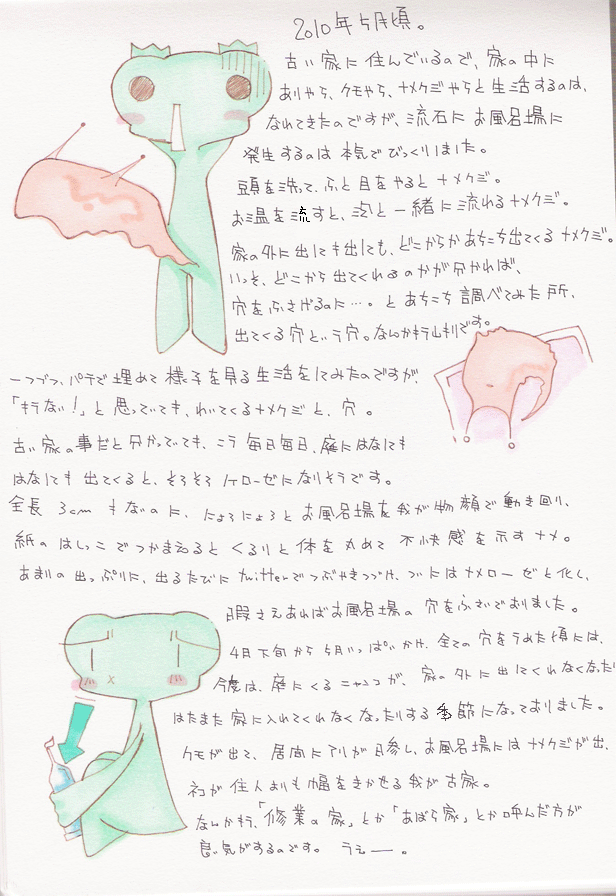 2010年5月頃。
古い家に住んでいるので、家の中に
ありやら、クモやら、ナメクジやらと生活するのは、
なれてきたのですが、流石にお風呂場に
発生するのは本気でびっくりしました。
頭を洗って、ふと目をやるとナメクジ。
お温を流すと、泡と一緒に流れるナメクジ。
家の外に出しても出しても、どこからかあちこち出てくるナメクジ。
いっそ、どこから出てくれるのかが分かれば、
穴をふさげるのに…。とあちこち調べてみた所、
出てくる穴という穴。なんかもう山利です。
一つづつ、パテで埋めて様子を見る生活をしてみたのですが、
「キリない!」と思っていても、わいてくるナメクジと、穴。
古い家の事だと分かっていても、こう毎日毎日、庭にはなしても
はなしても出てくると、そろそろノイローゼになりそうです。
全長3cmもないのに、にょろにょろとお風呂場を我が物顔で動き回り、
紙のはしっこでつかまえるとくるりと体を丸めて不快感を示すナメ。
あまりの出っぷりに、出るたびにtwitterでつぶやきつづけ、ついにはナメローゼと化し、
暇さえあればお風呂場の穴をふさいでおりました。
4月下旬から5月いっぱいかけ、全ての穴をうめた頃には、
今度は、庭にくるニャンコが、家の外に出してくれなくなったり
はたまた家に入れてくれなくなったりする季節になっておりました。
クモが出て、居間にアリが日参し、お風呂場にはナメクジが出、
ネコが住人よりも幅をきかせる我が古家。
なんかもう、「修業の家」とか「あばら家」とか呼んだ方が
良い気がするのです。うえー。